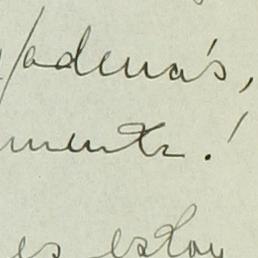 /adena's,
mente.!
es estoy